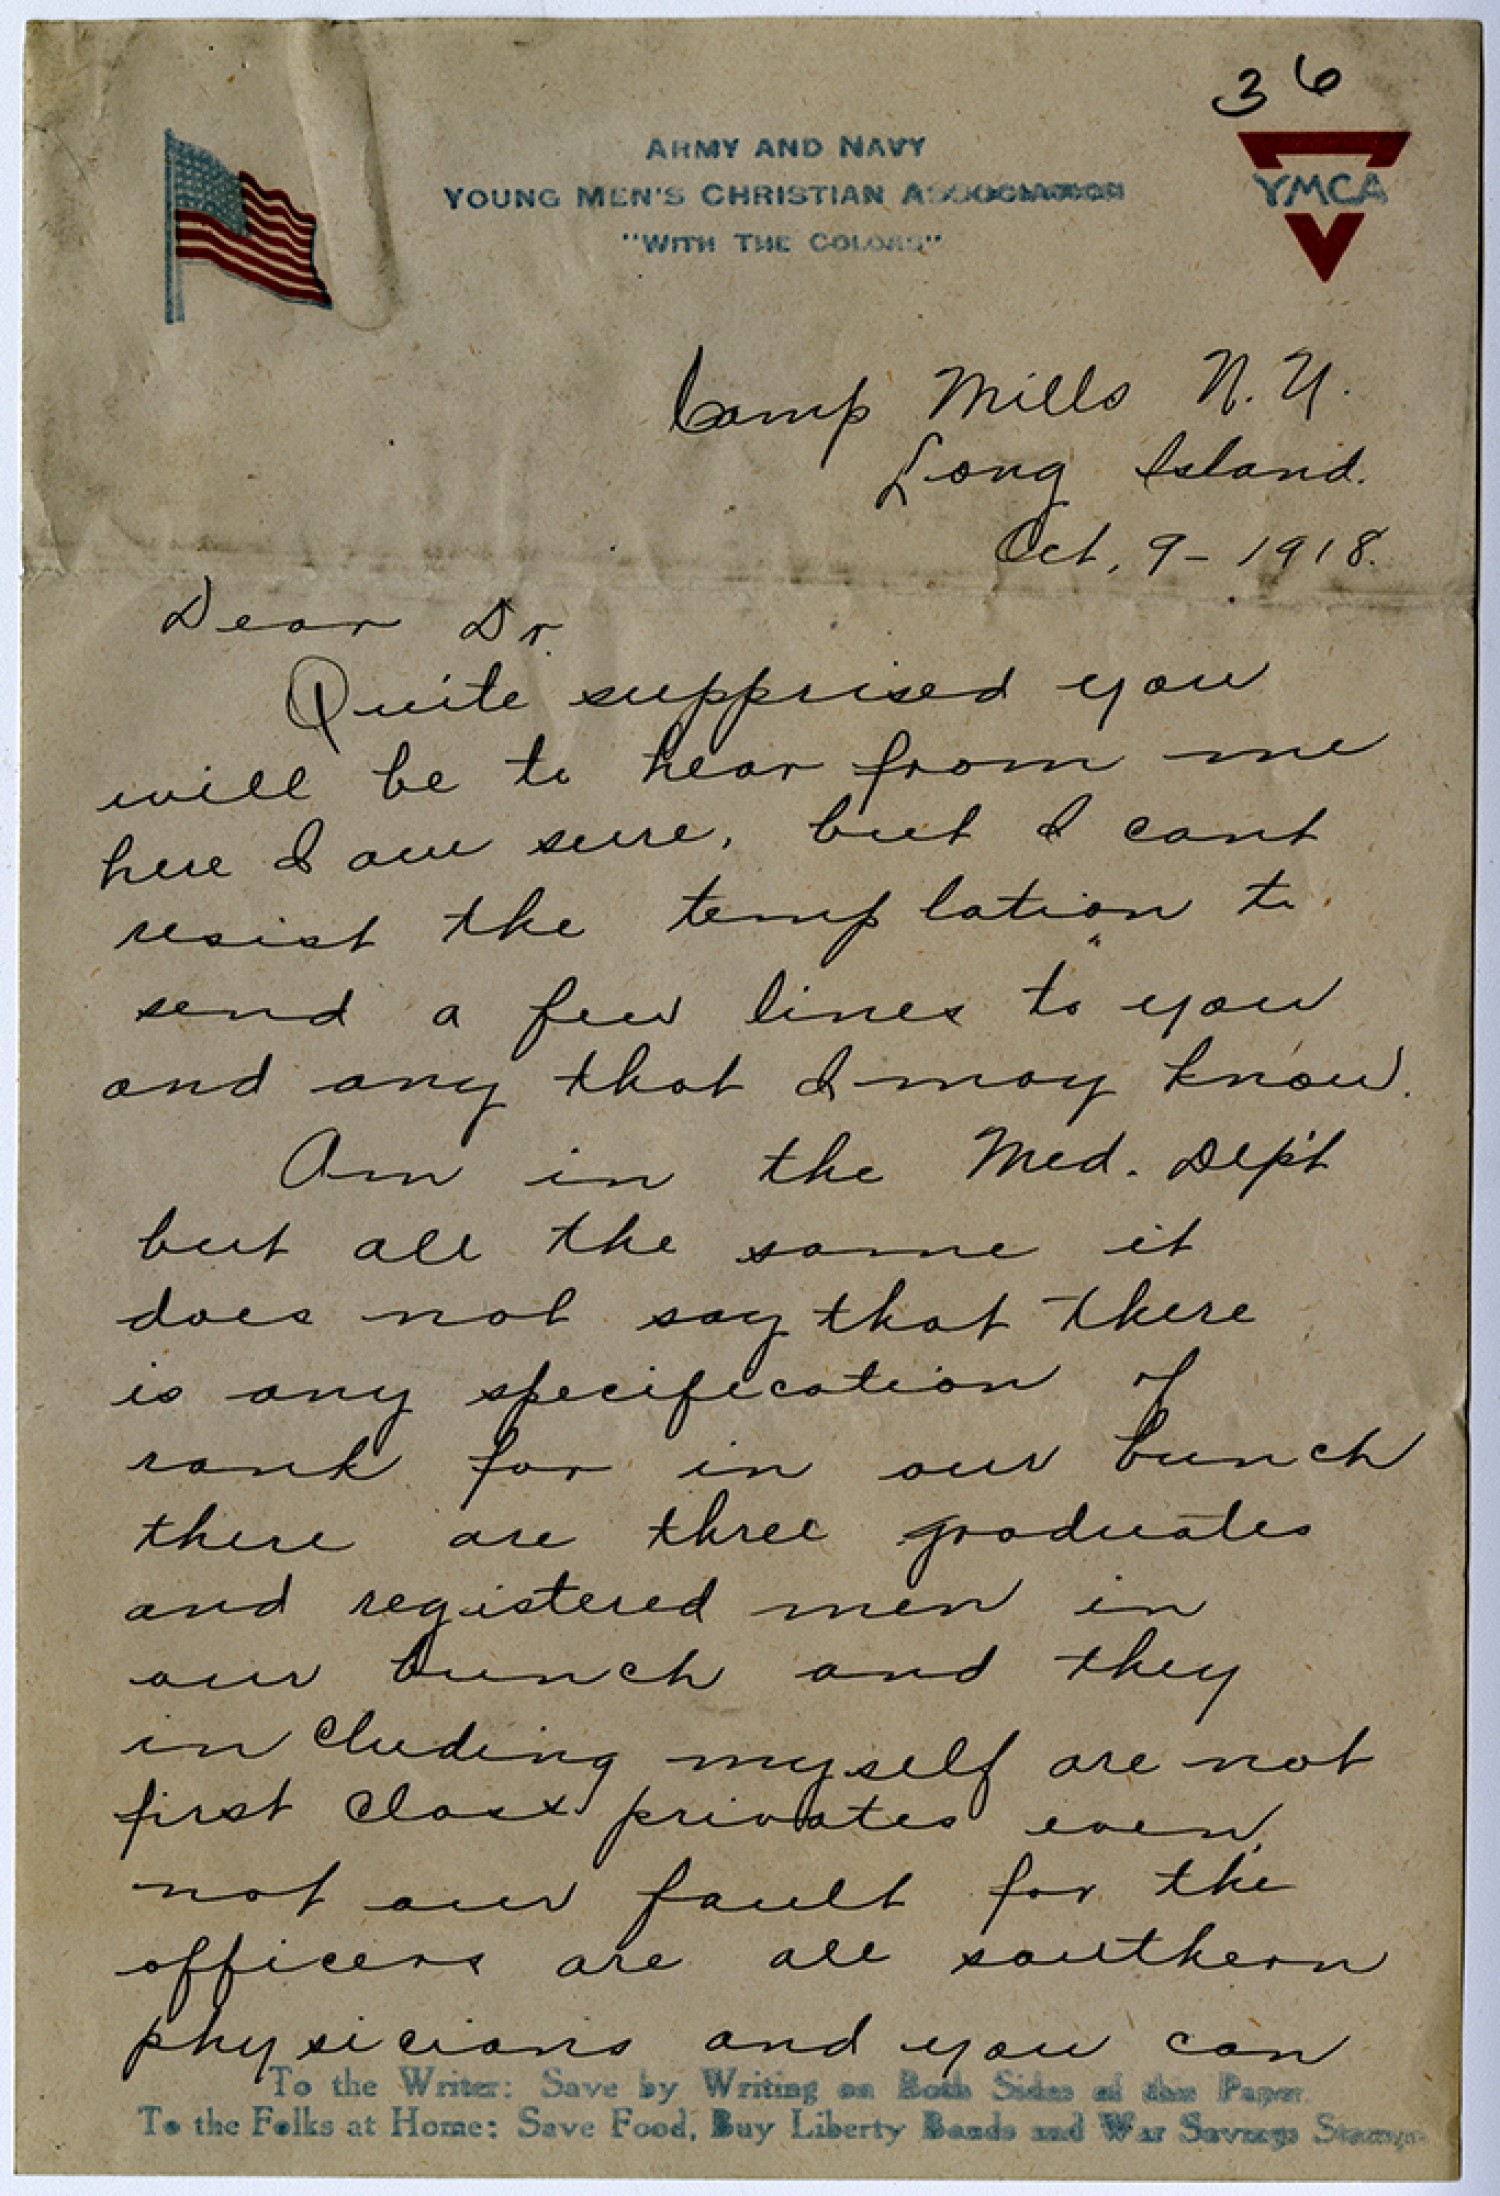 36
ARMY AND NAVY
YOUNG MEN'S CHRISTIAN ASSOCIATION
"WITH THE COLORS"
YMCA
Camp Mills N.Y.
Long Island.
Oct, 9-1918.
Dear Dr.
Quite supprised you
will be to hear from me
here I am sure, but I cant
resist the templation to
send a few lines to you
and any that I may know.
Am in the Med. Dep't
but all the same it
does not say that there
is any specification of
rank for in our bunch
there are three graduates
and registered men in
our bunch and they
including myself are not
first class privates even,
not our fault for the
officers are all southern
physicians and you can
To the Writer: Save by Writing on Both Sides of this Paper.
To the Folks at Home: Save Food, Buy Liberty Bonds and War Savings Stamps